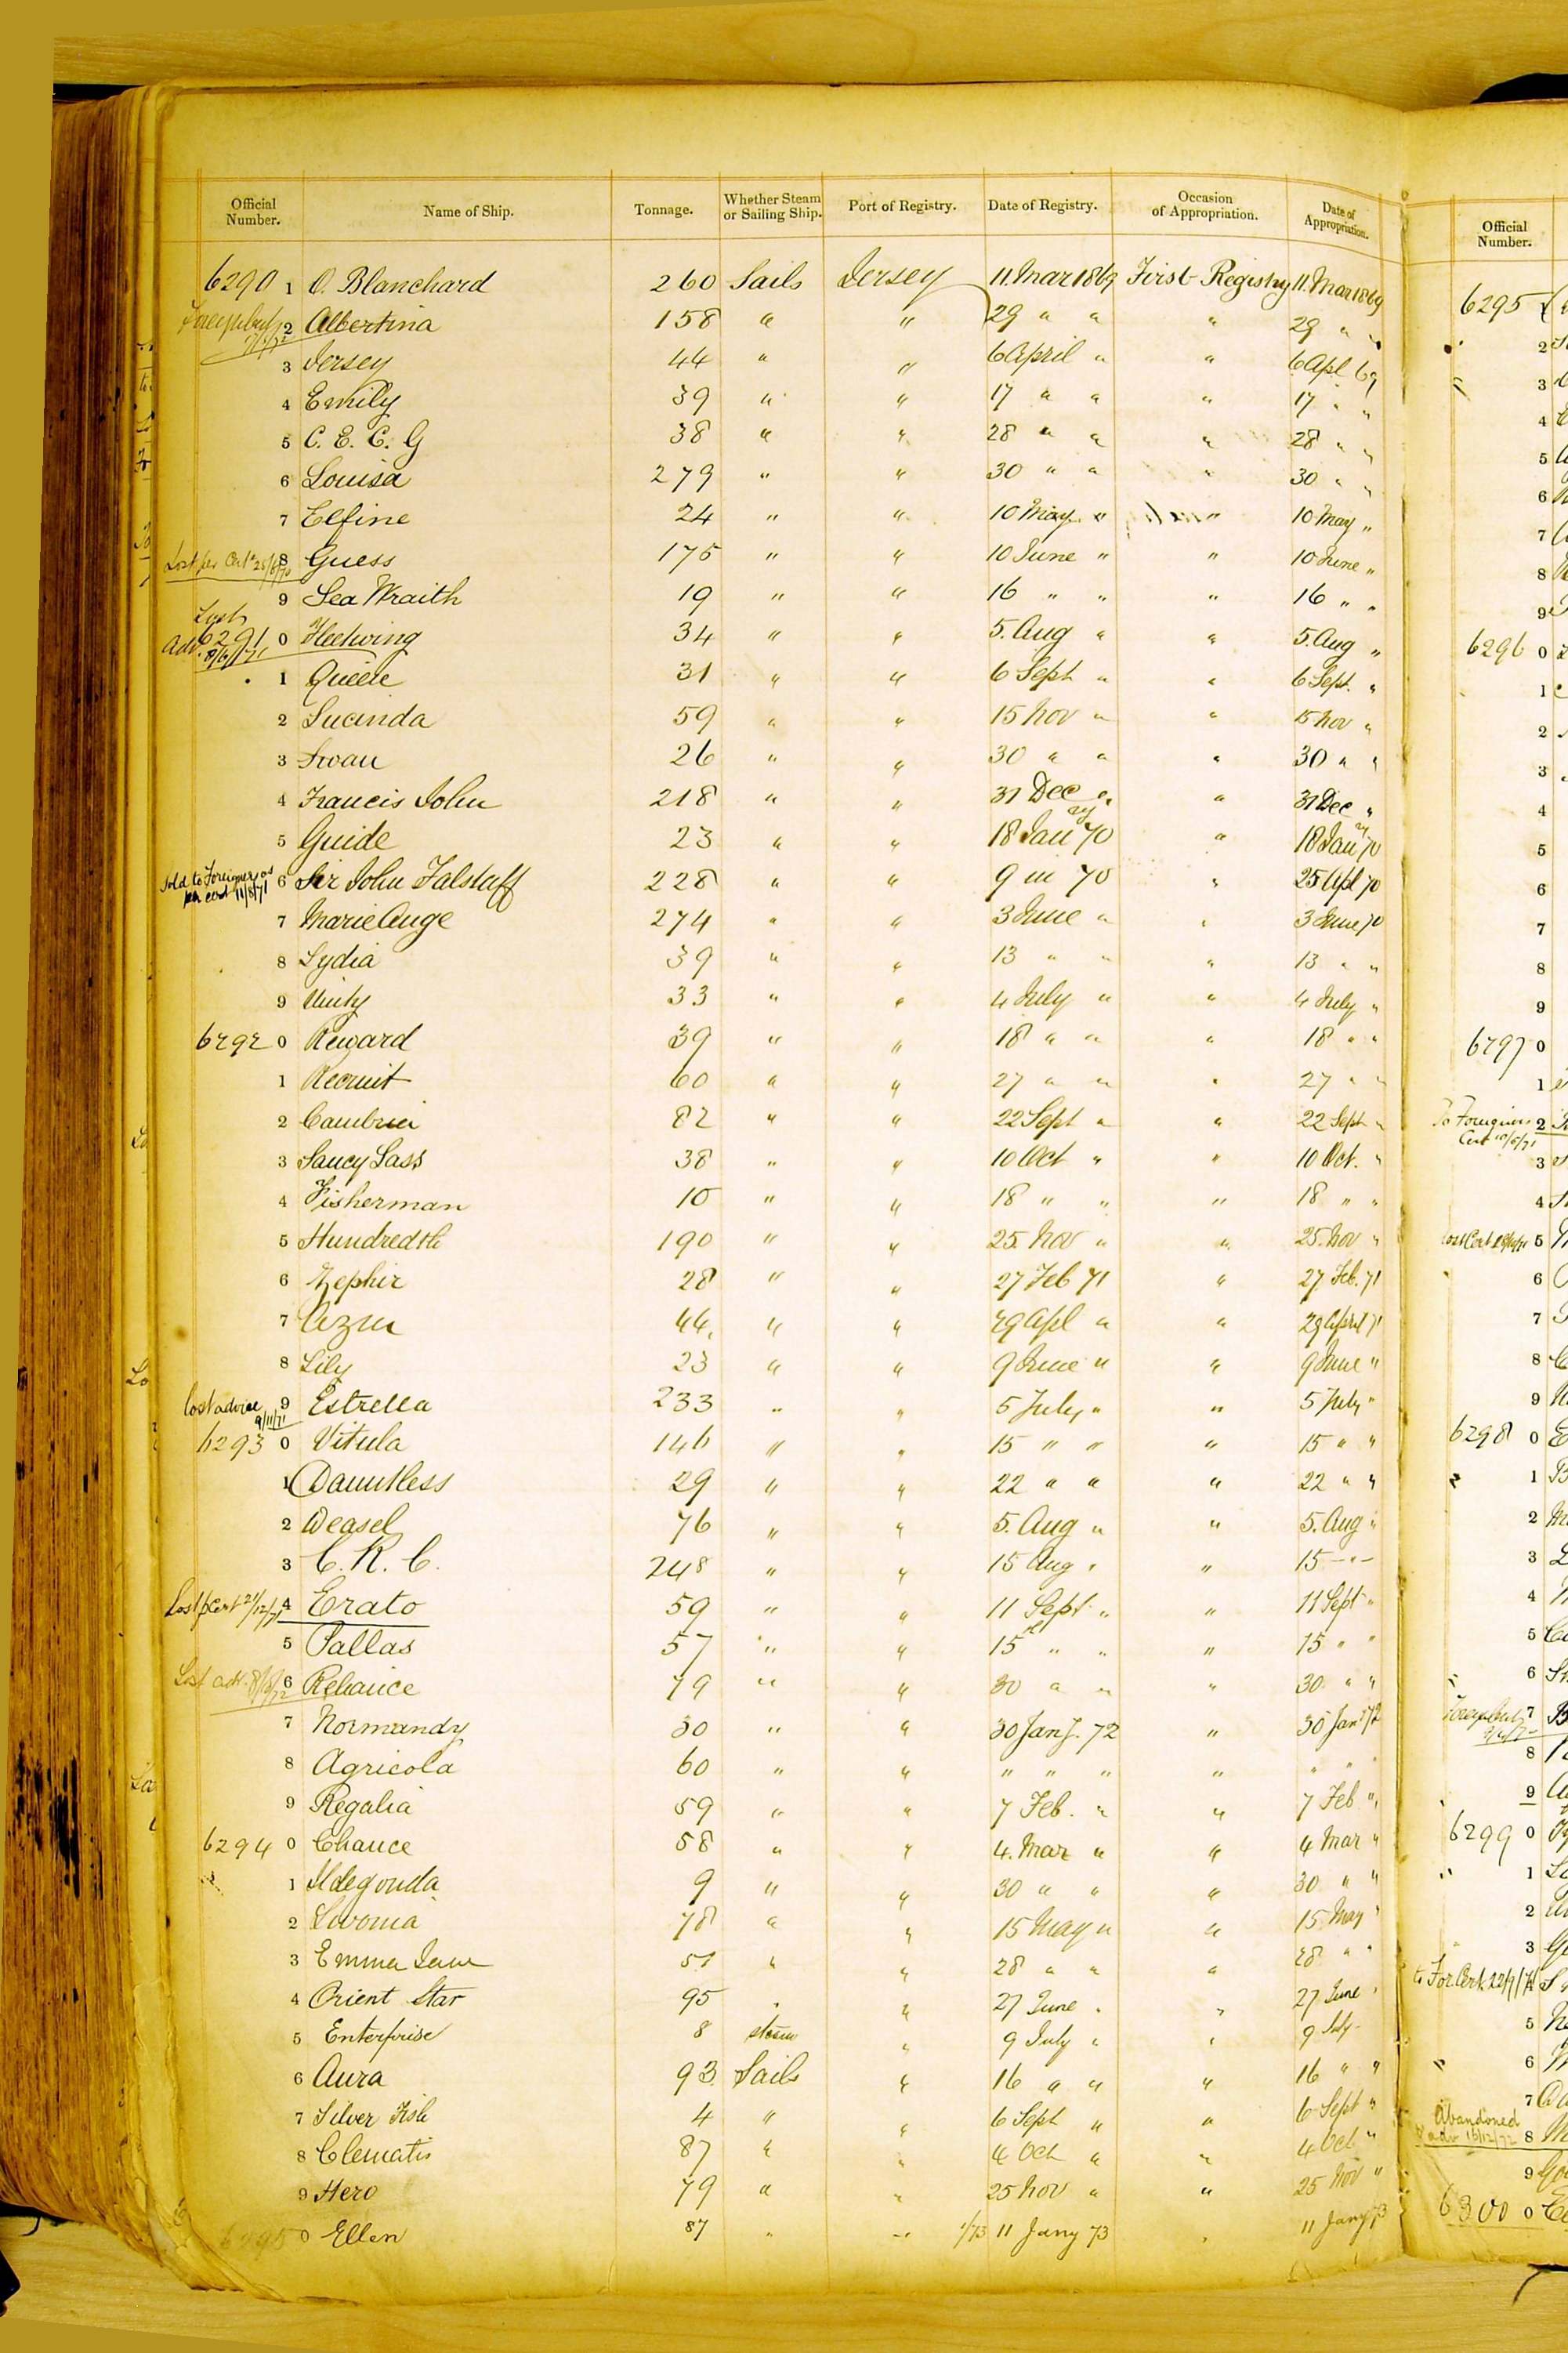 Official Number. Name of Ship. Tonnage. Whether Steam or Sailing Ship. Port of Registry. Date of Registry. Occasion of Appropriation. Date of Appropriation. Official Number.
6290 1 O. Blanchard 260 Sails Jersey 11. Mar 1869 First Registry 11. Mar 1869
2 Albertina 158 " " 29 " " " 29 " "
3 Jersey 44 " " 6 April " " 6 Apl 69
4 Emily 39 " " 17 " " " 17 " "
5 C. E. C. G 38 " " 28 " " " 28 " "
6 Louisa 279 " " 30 " " " 30 " "
7 Elfine 24 " " 10 May " " 10 May "
Lost per Cert 8 Guess 175 " " 10 June " " 10 June "
9 Sea Wraith 19 " " 16 " " " 16 " "
Lost
6291 0 Fleetwing 34 " " 5. Aug " " 5. Aug "
1 31 " " 6 Sept " " 6 Sept. "
2 Lucinda 59 " " 15 Nov " " 15 Nov "
3 Swan 26 " " 30 " " " 30 " "
4 Francis John 218 " " 31 Dec " " 31 Dec "
5 Guide 23 " " 18 Jany 70 " 18 Jany 70
Sold to Foreigners as per cert 11/8/71 6 Sir John Falstaff 228 " " 9 in 70 " 25 Apl 70
7 Marie Ange 274 " " 3 June " " 3 June 70
8 Lydia 39 " " 13 " " " 13 " "
9 Unity 33 " " 4 July " " 4 July "
6292 0 Reward 39 " " 18 " " " 18 " "
1 Recruit 60 " " 27 " " " 27 " "
2 Cambria 82 " " 22 Sept " " 22 Sept "
3 Saucy Lass 38 " " 10 Oct " " 10 Oct. "
4 Fisherman 10 " " 18 " " " 18 " "
5 Hundredth 190 " " 25. Nov " " 25. Nov "
6 Zephir 28 " " 27 Feb 71 " 27 Feb. 71
7 Azur 44. " " 29 Apl " " 29 April 71
8 Lily 23 " " 9 June " " 9 June "
Lost advice 9/11/71 9 Estrella 233 " " 5 July " " 5 July "
6293 0 Vitula 146 " " 15 " " " 15 " "
1 Dauntless 29 " " 22 " " " 22 " "
2 Weasel 76 " " 5. Aug " " 5. Aug "
3 C. R. C. 248 " " 15 Aug " " 15 — " —
Lost p Cert 21/12/71 4 Erato 59 " " 11 Sept " " 11 Sept "
5 Pallas 57 " " 15 " " " 15 " "
Lost adv. 6 Reliance 79 " " 30 " " " 30 " "
7 Normandy 30 " " 30 Jany. 72 " 30 Jany 72
8 Agricola 60 " " " " " " " " "
9 Regalia 59 " " 7 Feb. " " 7 Feb "
6294 0 Chance 58 " " 4. Mar " " 4 Mar "
1 Ildegonda 9 " " 30 " " " 30 " "
2 Livonia 78 " " 15 May " " 15 May "
3 Emma Jane 51 " " 28 " " " 28 " "
4 Orient Star 95 " " 27 June " " 27 June "
5 Enterprise 8 steam " 9 July " " 9 July
6 Aura 93 Sails " 16 " " " 16 " "
7 Silver Fish 4 " " 6 Sept " " 6 Sept "
8 Clematis 87 " " 4 Oct " " 4 Oct "
9 Hero 79 " " 25 Nov " " 25 Nov "
6295 0 Ellen 87 " " 1/73 11 Jany 73 " 11 Jany 73
6295
2
3
4
5
6
7
8
9
6296 0
1
2
3
4
5
6
7
8
9
6297 0
1
To Foreigners Cert 2
3
4
Lost Cert 5
6
7
8
9
6298 0
1
2
3
4
5
6
7
8
9
6299 0
1
2
3
to For Cert. 22/9/71
5
6
7
Abandoned adv 16/12/72 8
9
6300 0